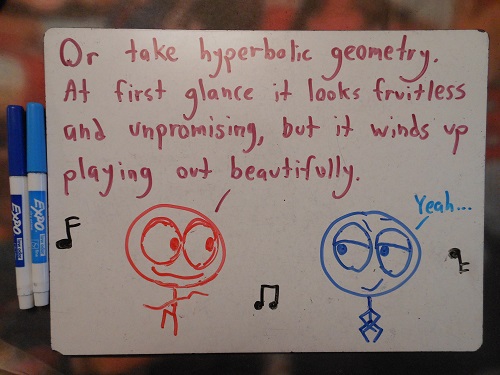 Or take hyperbolic geometry.
At first glance it looks fruitless
and unpromising, but it winds up
playing out beautifully.
Yeah...
EXPO
EXPO